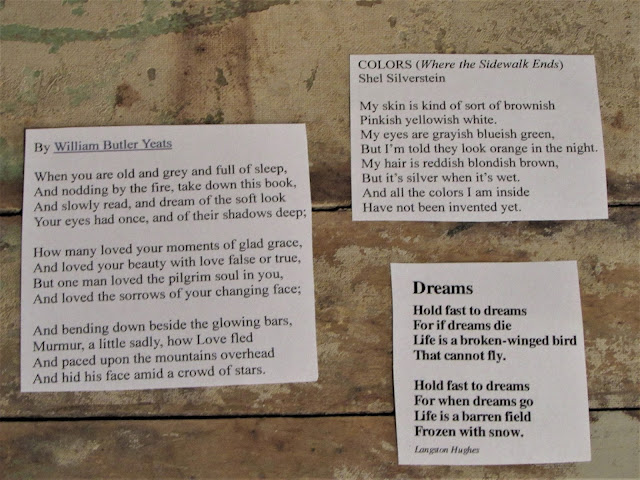 By William Butler Yeats
When you are old and grey and full of sleep,
And nodding by the fire, take down this book,
And slowly read, and dream of the soft look
Your eyes had once, and of their shadows deep;
How many loved your moments of glad grace,
And loved your beauty with love false or true,
But one man loved the pilgrim soul in you,
And loved the sorrows of your changing face;
And bending down beside the glowing bars,
Murmur, a little sadly, how Love fled
And paced upon the mountains overhead
And hid his face amid a crowd of stars.
COLORS (Where the Sidewalk Ends)
Shel Silverstein
My skin is kind of sort of brownish
Pinkish yellowish white.
My eyes are grayish blueish green,
But I'm told they look orange in the night.
My hair is reddish blondish brown,
But it's silver when it's wet.
And all the colors I am inside
Have not been invented yet.
Dreams
Hold fast to dreams
For if dreams die
Life is a broken-winged bird
That cannot fly.
Hold fast to dreams
For when dreams go
Life is a barren field
Frozen with snow.
Langston Hughes